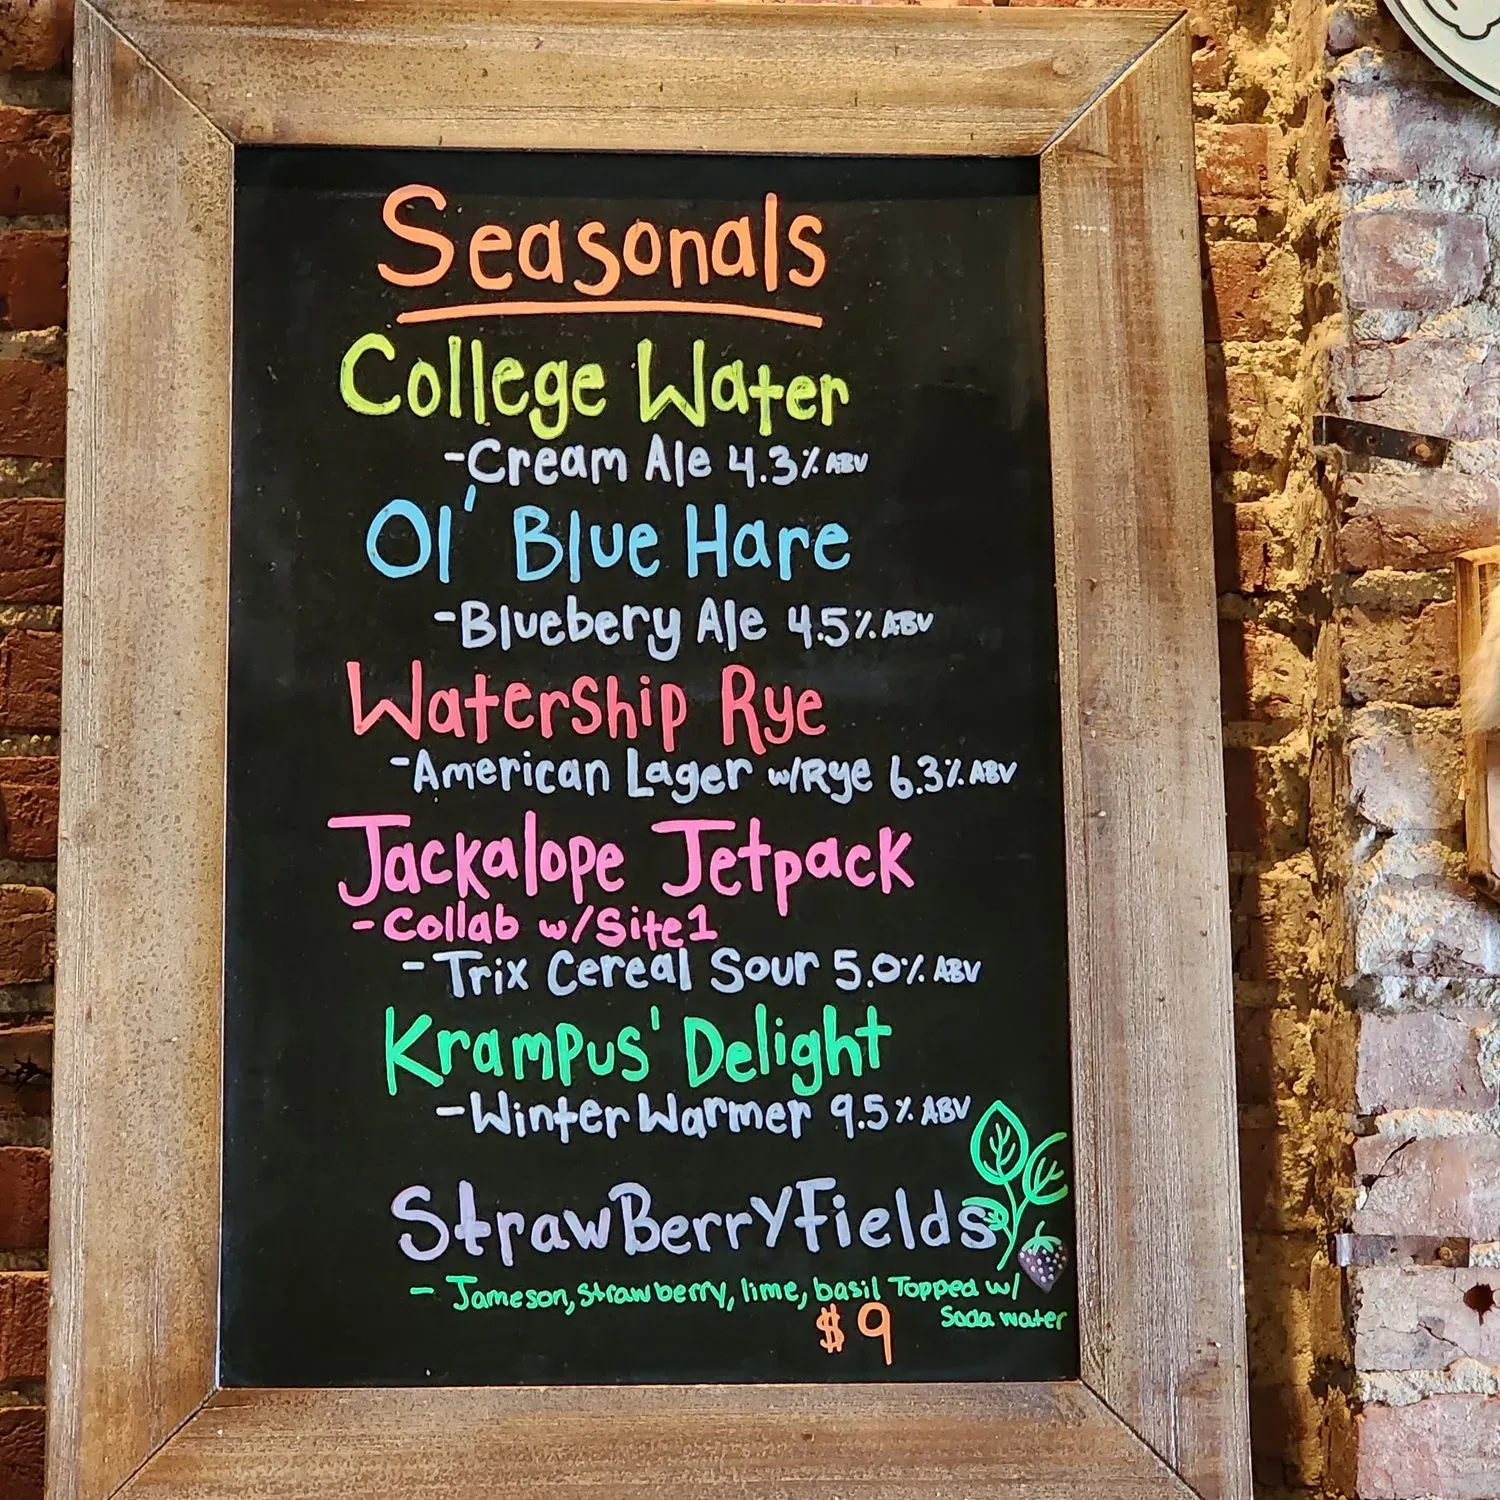 Seasonals
College Water
-Cream Ale 4.3% ABV
Ol' Blue Hare
-Bluebery Ale 4.5% ABV
Watership Rye
-American Lager w/Rye 6.3% ABV
Jackalope Jetpack
-Collab w/Site1
-Trix Cereal Sour 5.0% ABV
Krampus' Delight
-Winter Warmer 9.5% ABV
StrawBerryFields
- Jameson, strawberry, lime, basil Topped w/
Soda water
$9